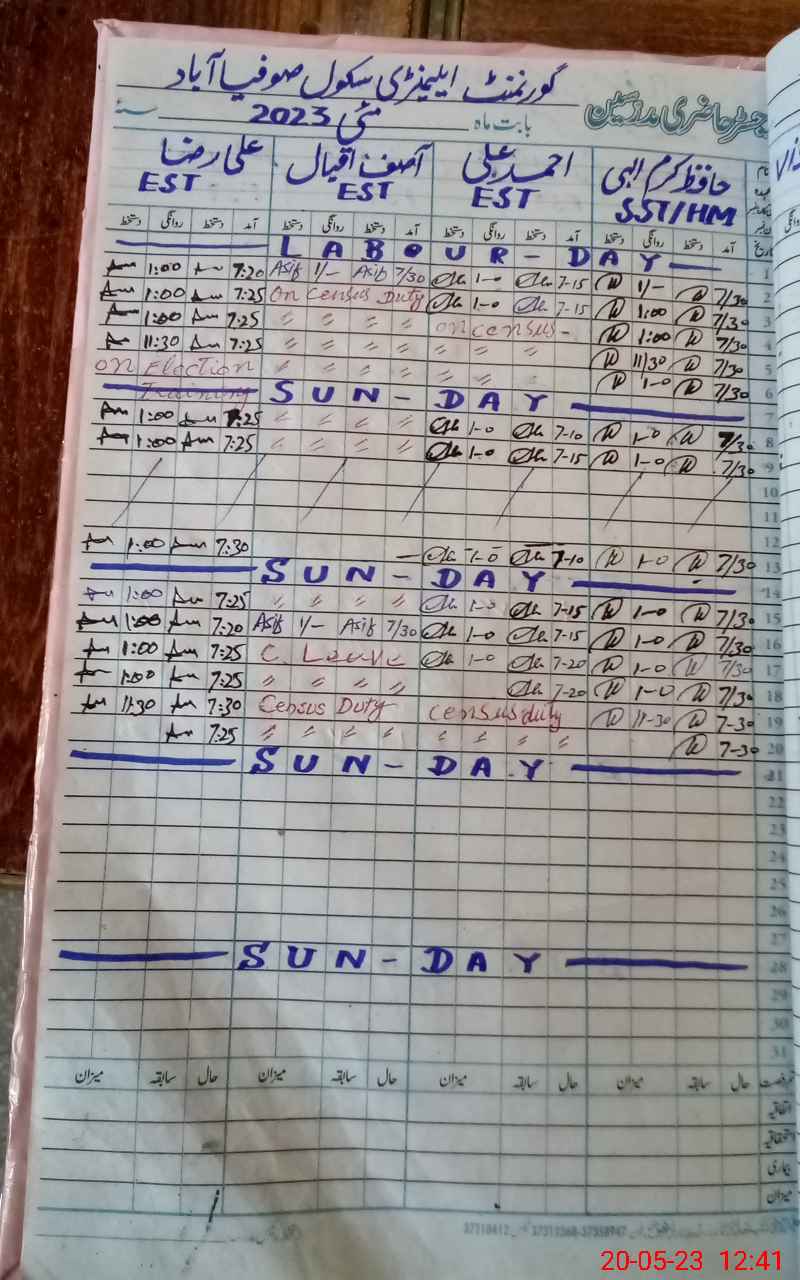 گورنمنٹ ایلیمنٹری سکول صوفیا آباد
رجسٹر حاضری مدرسین بابت ماہ مئی 2023 سنہ
حافظ کرم الہی احمد علی آصف اقبال علی رضا
SST/HM EST EST EST
تاریخ آمد دستخط روانگی دستخط آمد دستخط روانگی دستخط آمد دستخط روانگی دستخط آمد دستخط روانگی دستخط
LABOUR-DAY 1
1:00 7:20 Asif 1/- Asif 7/30 1-0 7-15 1/- 7/30 2
1:00 7:25 On Census Duty 1-0 7-15 1:00 7/30 3
1:00 7:25 〃 〃 〃 〃 on census - 1:00 7/30 4
11:30 7:25 〃 〃 〃 〃 〃 〃 〃 11/30 7/30 5
on Election 〃 〃 〃 〃 〃 〃 1-0 7/30 6
Training SUN-DAY 7
1:00 7:25 〃 〃 〃 〃 1-0 7-10 1-0 7/30 8
1:00 7:25 〃 〃 〃 〃 1-0 7-15 1-0 7/30 9
10
11
12
1:00 7:30 1-0 7-10 1-0 7/30 13
SUN-DAY 14
1:00 7:25 〃 〃 〃 〃 1-0 7-15 1-0 7/30 15
1:00 7:20 Asif 1/- Asif 7/30 1-0 7-15 1-0 7/30 16
1:00 7:25 C. Leave 1-0 7-20 1-0 7/30 17
1:00 7:25 〃 〃 〃 〃 7-20 1-0 7/30 18
11:30 7:30 Census Duty census duty 11-30 7-30 19
7:25 〃 〃 〃 〃 〃 〃 〃 〃 7-30 20
SUN-DAY 21
22
23
24
25
26
27
SUN-DAY 28
29
30
31
رخصت حال سابقہ میزان حال سابقہ میزان حال سابقہ میزان حال سابقہ میزان
اتفاقیہ
استحقاقیہ
بیماری
میزان
20-05-23 12:41